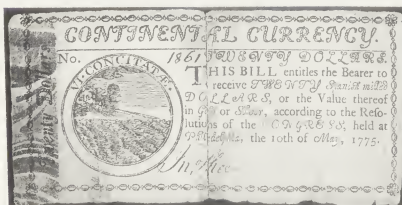 CONTINENTAL CURRENCY.
No. 1861 TWENTY DOLLARS.
VI CONCITATÆ.
THIS BILL entitles the Bearer to
receive TWENTY Spanish milled
DOLLARS, or the Value thereof
in Gold or Silver, according to the Reso-
lutions of the CONGRESS, held at
Philadelphia, the 10th of May, 1775.
Twenty Dollars